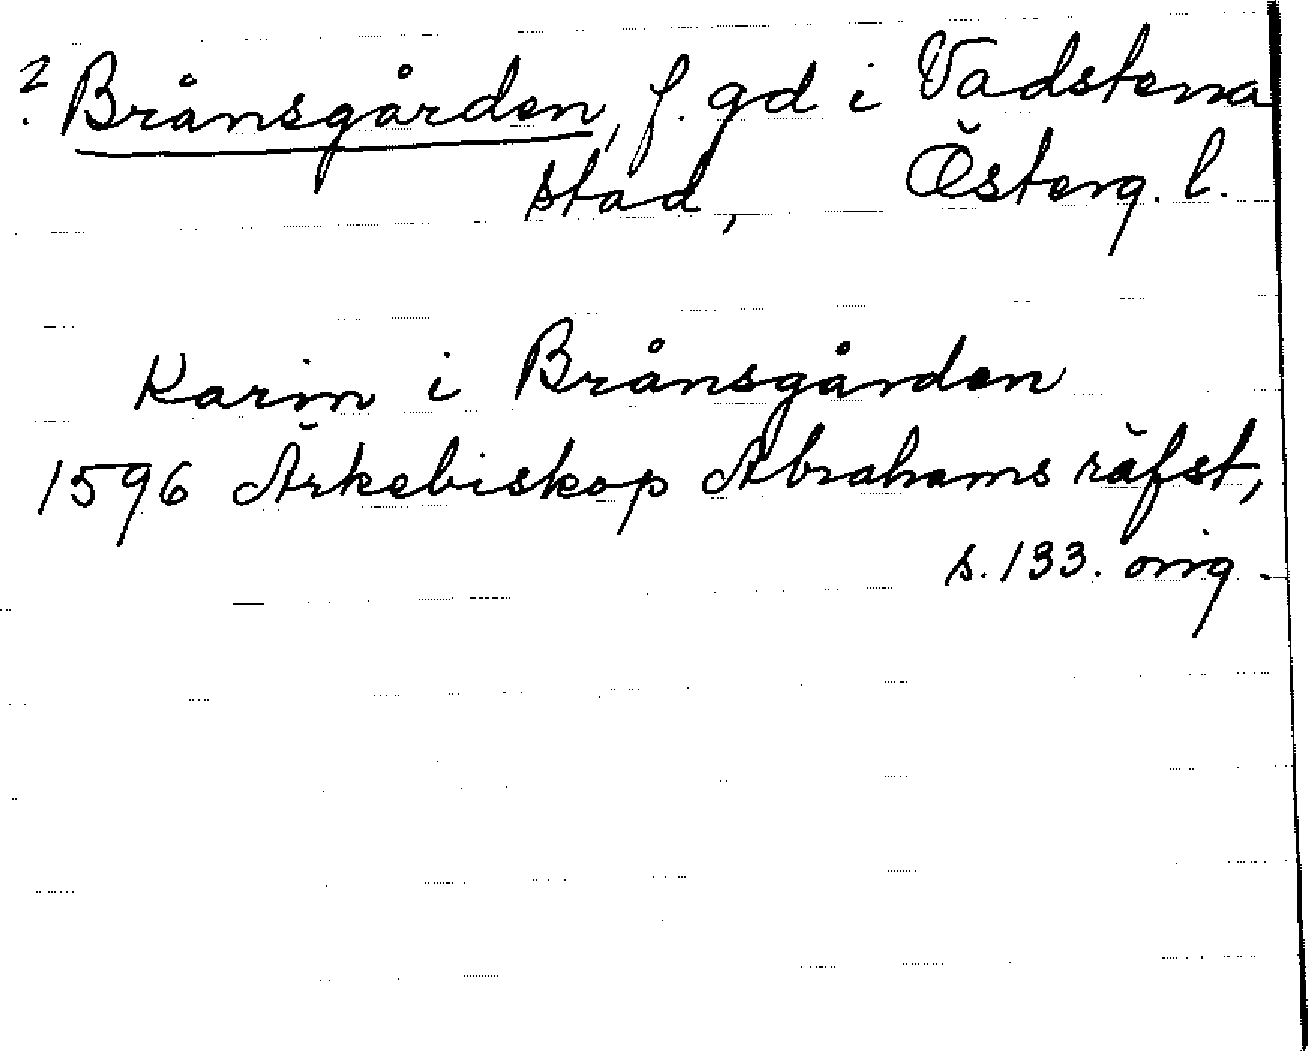 ? Brånsgården, f. gd i Vadstena
stad, Österg. l.
Karin i Brånsgården
1596 Ärkebiskop Abrahams räfst,
s. 133. orig.